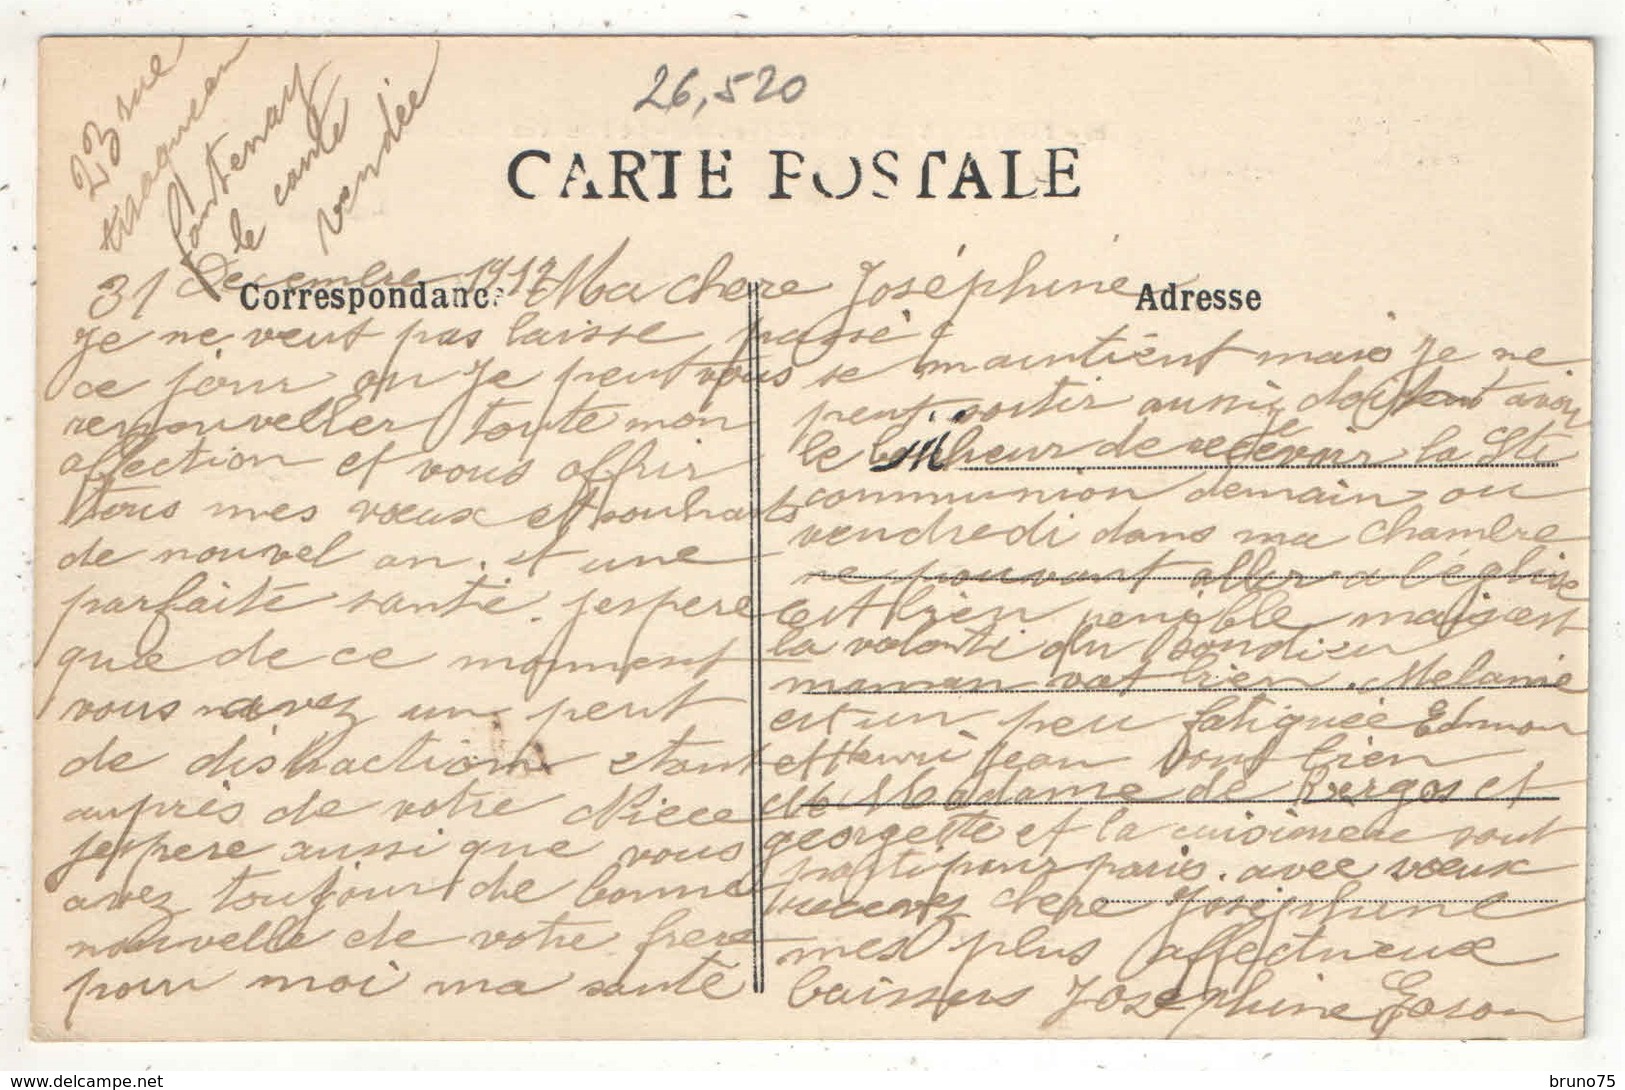 26,520
CARTE POSTALE
23 rue
tiraqueau
fontenay
le conte
vendée
Correspondance
Adresse
31 Decembre 1917 Ma chere Joséphine
Je ne veut pas laisse passé
ce jour ou Je peut vous
renouveller toute mon
affection et vous offrir
tous mes vœux et souhaits
de nouvel an. et une
parfaite santé. Jespere
que de ce momment
vous avez un peut
de distraction etant
auprès de votre Niece
Jespere aussi que vous
avez toujour de bonne
nouvelle de votre frere
pour moi ma santé
se maintient mais Je ne
peut sortir aussi Je doit avoir
le bonheur de recevoir la Ste
communion demain ou
vendredi dans ma chambre
ne pouvant aller a l'église
est bien penible mais cest
la volonti du bondieu
maman vat bien. Melanie
est un peu fatiguée Edmon
et Henri Jean vont bien
M Madame de Bergos et
georgette et la cuisinere sont
parti pour paris. avec vœux
recevez chere Joséphine
mes plus affectueux
baissers Josephine
bruno75